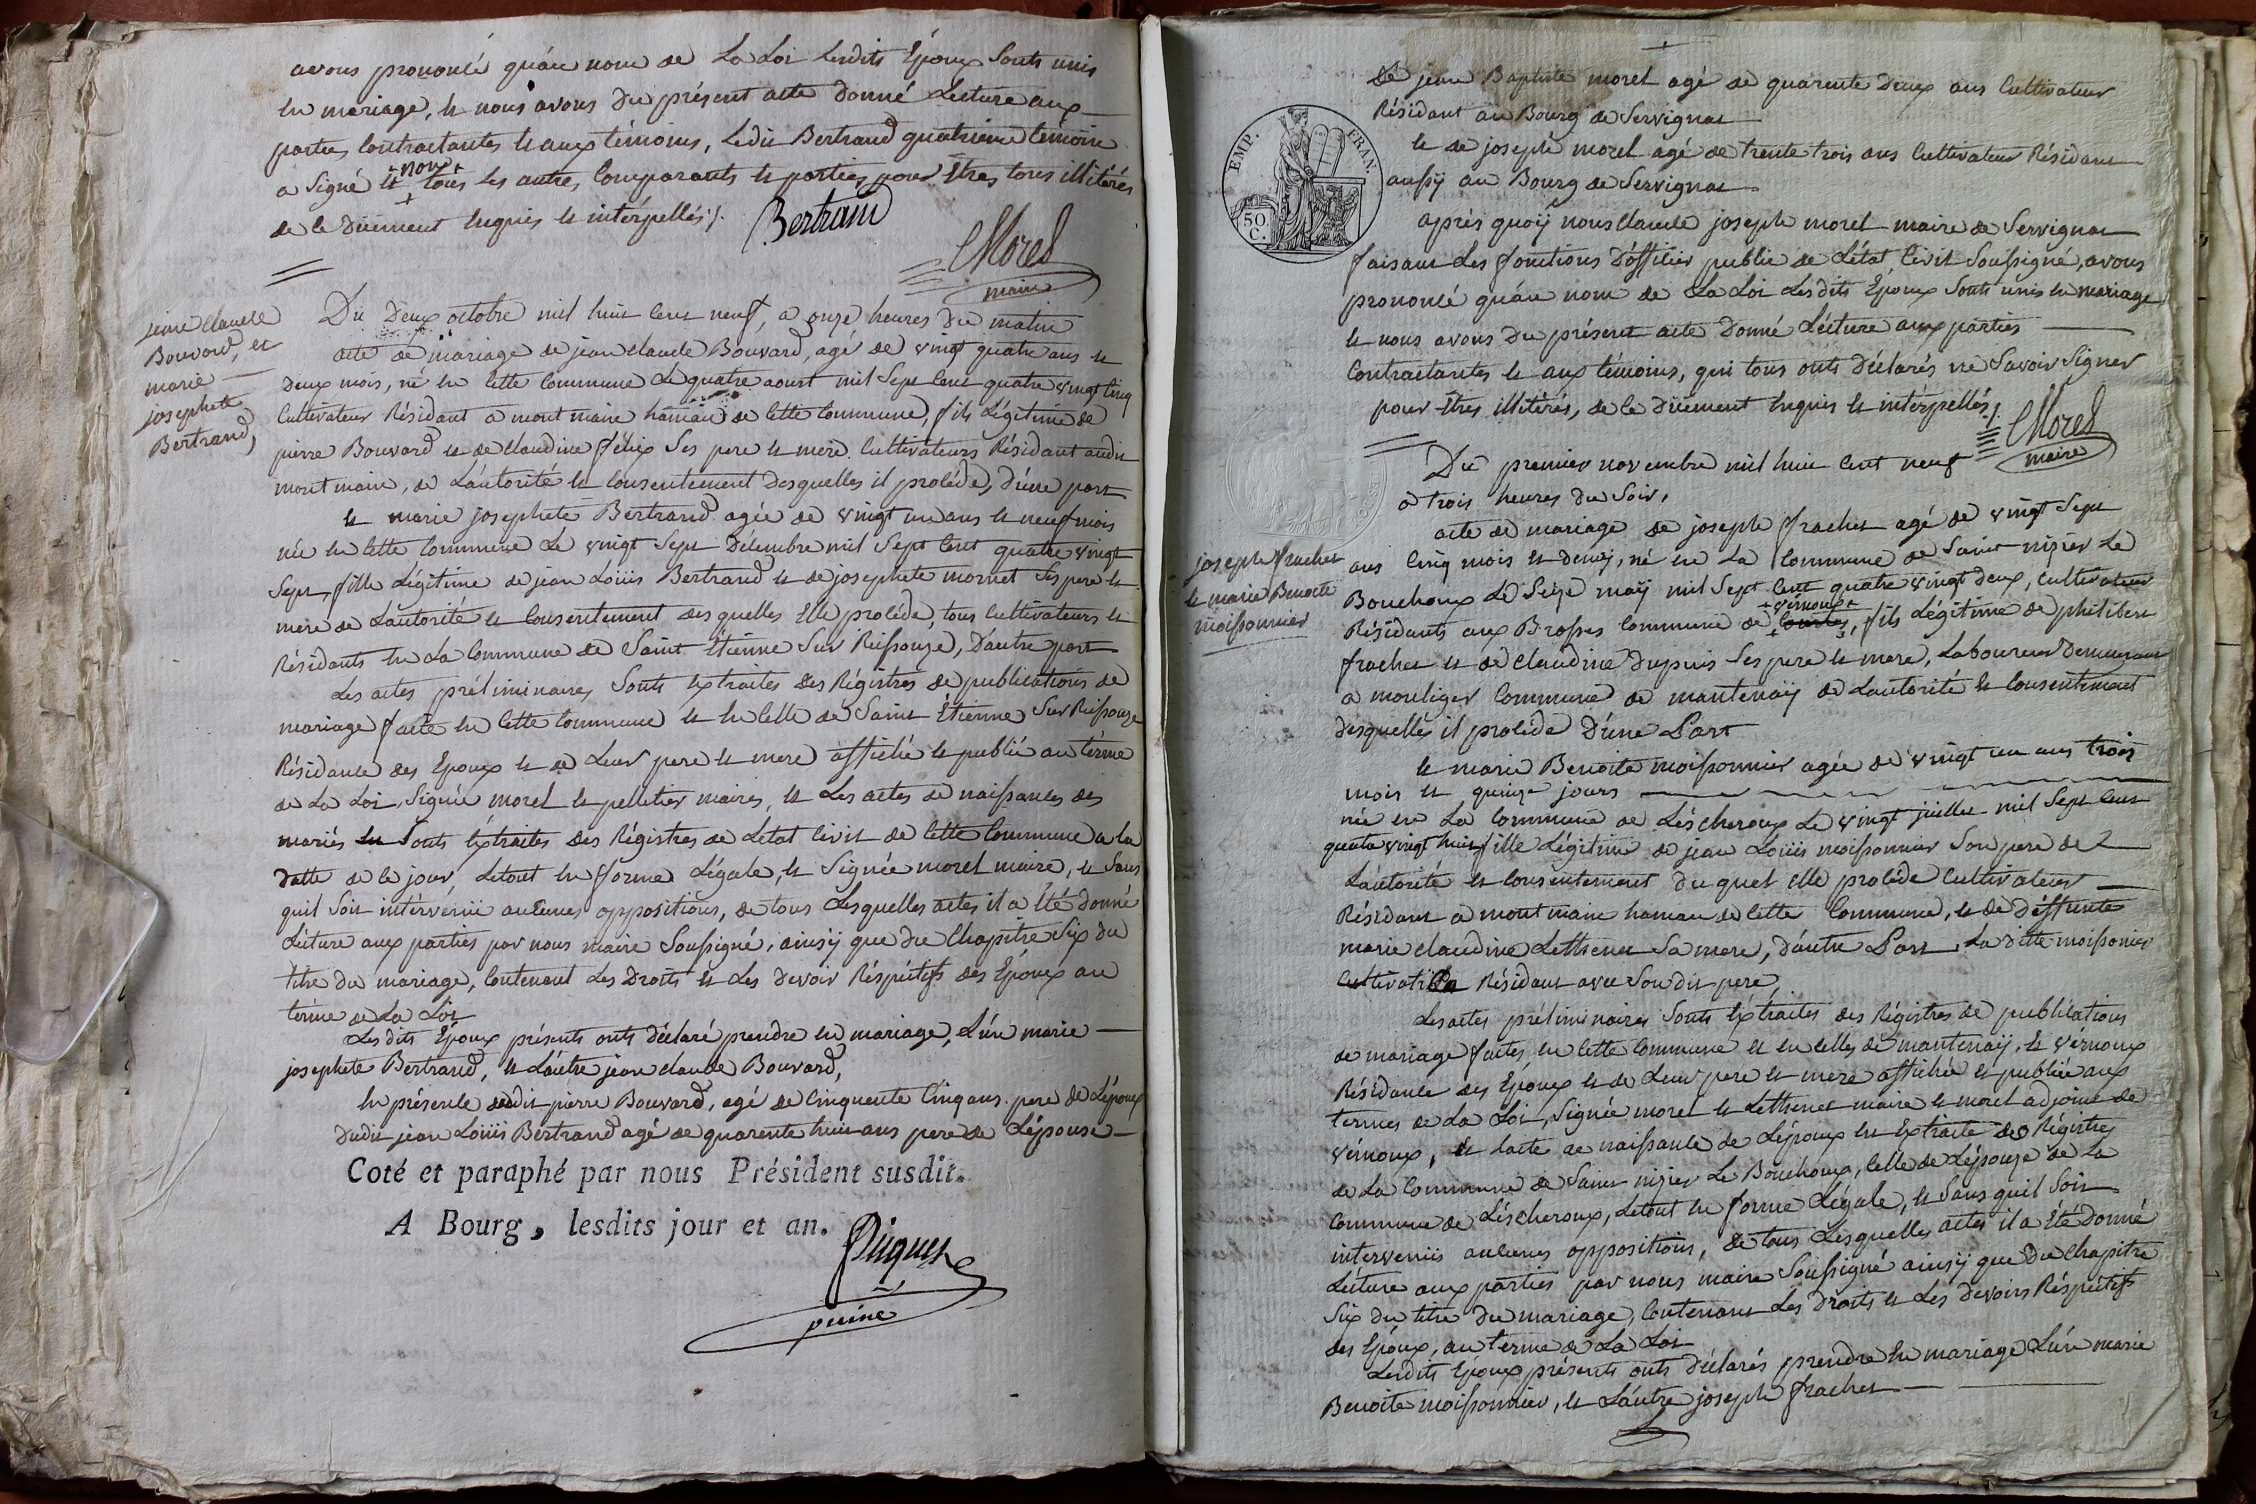 avons prononcé qu'au nom de La Loi Lesdits Époux Sonts unis
en mariage, et nous avons du présent acte donné Lecture aux
parties Contractantes et aux témoins, Ledit Bertrand quatrième témoin
a Signé et +non+ tous les autres Comparants et parties pour Êtres tous illitérés
de ce Düement Enquis et intérpellés ;/.
Bertrand
CMorel
maire
jean claude
Bouvard, et
marie
josephete
Bertrand,
Du Deux octobre mil huit Cent neuf, a onze heures Du matin
acte de mariage de jean claude Bouvard, agé de vingt quatre ans et
Deux mois, né en Cette Commune Le quatre aoust mil Sept Cent quatre vingt Cinq
Cultivateur Résidant a mont main hamau de Cette Commune, fils Légitime de
pierre Bouvard et de Claudine félix Ses pere et mere Cultivateurs Résidant audit
mont main, de L'autorité et Consentement desquelles il procède, d'une part
et marie josephete Bertrand agée de vingt un ans et neuf mois
née en Cette Commune Le vingt Sept Décembre mil Sept Cent quatre vingt
Sept, fille Légitime de jean Loüis Bertrand et de josephete mornet Ses pere et
mere de L'autorité et Consentement des quelles Elle procède, tous Cultivateurs et
Résidants En La Commune de Saint Étienne Sur Reissouze, D'autre part
Les actes préliminaires Sonts Extraites des Régistres de publications de
mariage faite en Cette Commune et en Celle de Saint Étienne Sur Reissouze
Résidance des Epoux et de Leur pere et mere affichée et publié au términe
de La Loi, Signée morel et pelletier maires, et Les actes de naissances des
mariés Sonts Éxtraites des Régistres de L'etat Civil de Cette Commune a la
datte de Ce jour, Letout En forme Légale, et Signée morel maire, et Sans
quil Soit intervenü aucunes oppositions, de tous Lesquelles actes il a Eté donné
Lécture aux parties par nous maire Soussigné, ainsÿ que du Chapitre Six du
titre du mariage, Contenant Les Droits et Les Devoir Réspéctifs des Epoux au
térme de La Loi
Lesdits Epoux présents onts déclaré prendre en mariage, L'un marie
josephete Bertrand, et L'autre jean claude Bouvard,
En présence dudit pierre Bouvard, agé de Cinquante Cinq ans pere de L'époux
Dudit jean Loüis Bertrand agé de quarente huit ans pere de L'épouse
Coté et paraphé par nous Président susdit.
A Bourg, lesdits jour et an.
EMP. FRAN.
50 C.
De jean Baptiste morel agé de quarente Deux ans Cultivateur
Résidant au Bourg de Servignat
et de joseph morel agé de trente trois ans Cultivateur Résidant
aussÿ au Bourg de Servignat
aprés quoÿ nous Claude joseph morel maire de Servignat
faisant Les fonctions D'officier public de L'état Civil Soussigné, avons
prononcé qu'au nom de La Loi Lesdits Epoux Sonts unis en mariage
et nous avons du présent acte Donné Lécture aux parties
Contractantes et aux témoins, qui tous onts Déclarés ne Savoir Signer
pour êtres illitérés, de ce Düement Enquis et intérpellés ;/.
CMorel
maire
Du premier novembre mil huit Cent neuf
a trois heures Du Soir,
joseph frachet
et marie Benoite
moissonnier
acte de mariage de joseph frachet agé de vingt Sept
ans Cinq mois et demÿ, né en La Commune de Saint nizier Le
Bouchoux Le Seize maÿ mil Sept Cent quatre vingt deux, Cultivateur
Résidants aux Brosses Commune de +vérnoux+, fils Légitime de philibert
frachet et de Claudine Dupuis Ses pere et mere, Laboureur Demeurant
a montiger Commune de mantenaÿ de L'autorité et Consentement
desquelles il procède D'une Part
et marie Benoite moissonnier agée de vingt un ans trois
mois et quinze jours
née en La Commune de Léscheroux Le vingt juillet mil Sept Cent
quatre vingt huit fille Légitime de jean Loüis moissonnier Son pere de
L'autorité et Consentement du quel elle procède Cultivateur
Résidant a mont main hamau de Cette Commune, et de Déffunte
marie claudine Lethenet Sa mere, D'autre Part, La ditte moissonier
Cultivatrice Résidant avec Sondit pere,
Les actes préliminaires Sonts Éxtraites des Régistres de publications
de mariage faites en Cette Commune et en celles de mantenaÿ, et vérnoux
Résidance des Epoux et de Leur pere et mere affichée et publiée aux
termes de La Loi, Signée morel et Lethenet maire et morel adjoint de
vérnoux, et L'acte de naissance de L'époux En Extraite des Régistres
de La Commune de Saint nizier Le Bouchoux, Celle de L'épouze de La
Commune de Léscheroux, Letout En forme Légale, et Sans quil Soit
intervenüs aucunes oppositions, de tous Lesquelles actes il a Eté Donné
Lécture aux parties par nous maire Soussigné ainsÿ que du Chapitre
Six du titre du mariage, Contenant Les Droits et Les Devoirs Réspéctifs
des Epoux, au terme de La Loi
Lesdits Epoux présents onts déclarés prendre En mariage L'un marie
Benoite moissonnier, et L'autre joseph frachet